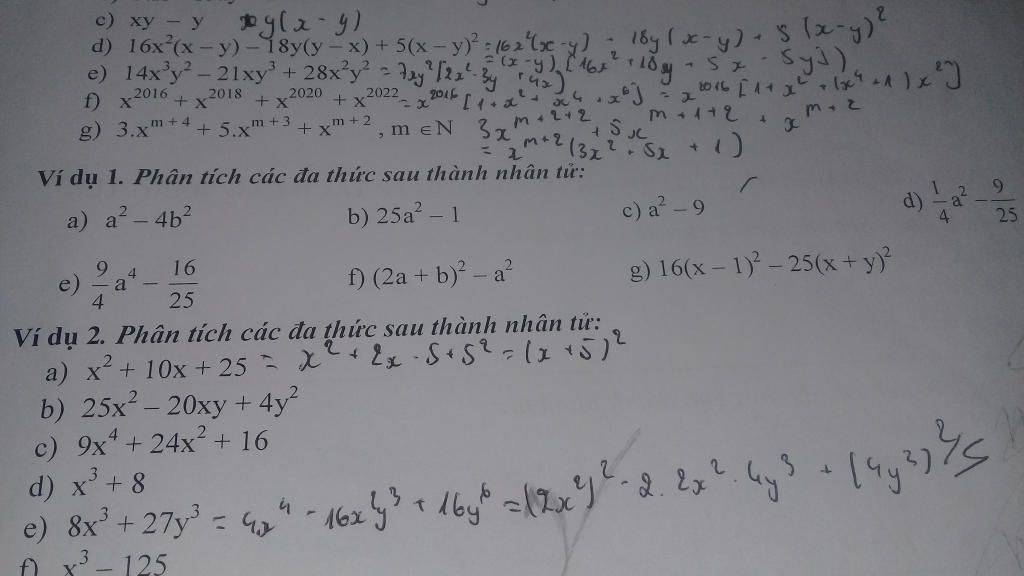 c) xy – y y(x – y)
d) 16x²(x – y) – 18y(y – x) + 5(x – y)² = 16x²(x – y) + 18y(x – y) + 5(x – y)²
= (x – y)[16x² + 18y + 5x – 5y]
e) 14x³y² – 21xy³ + 28x²y² = 7xy²[2x² – 3y + 4x]
f) x²⁰¹⁶ + x²⁰¹⁸ + x²⁰²⁰ + x²⁰²² = x²⁰¹⁶[1 + x² + x⁴ + x⁶] = x²⁰¹⁶[1 + x² + (x⁴ + 1)x²]
g) 3.xᵐ⁺⁴ + 5.xᵐ⁺³ + xᵐ⁺² , m ∈ N 3xᵐ⁺²⁺² + 5x ᵐ⁺¹⁺² + xᵐ⁺²
= xᵐ⁺²(3x² + 5x + 1)
Ví dụ 1. Phân tích các đa thức sau thành nhân tử:
a) a² – 4b² b) 25a² – 1 c) a² – 9 d) 1/4 a² – 9/25
e) 9/4 a⁴ – 16/25 f) (2a + b)² – a² g) 16(x – 1)² – 25(x + y)²
Ví dụ 2. Phân tích các đa thức sau thành nhân tử:
a) x² + 10x + 25 = x² + 2x · 5 + 5² = (x + 5)²
b) 25x² – 20xy + 4y²
c) 9x⁴ + 24x² + 16
d) x³ + 8
e) 8x³ + 27y³ = 4x⁴ – 16x²y³ + 16y⁶ = (2x²)² – 2 . 2x² . 4y³ + (4y³)²
f) x³ – 125